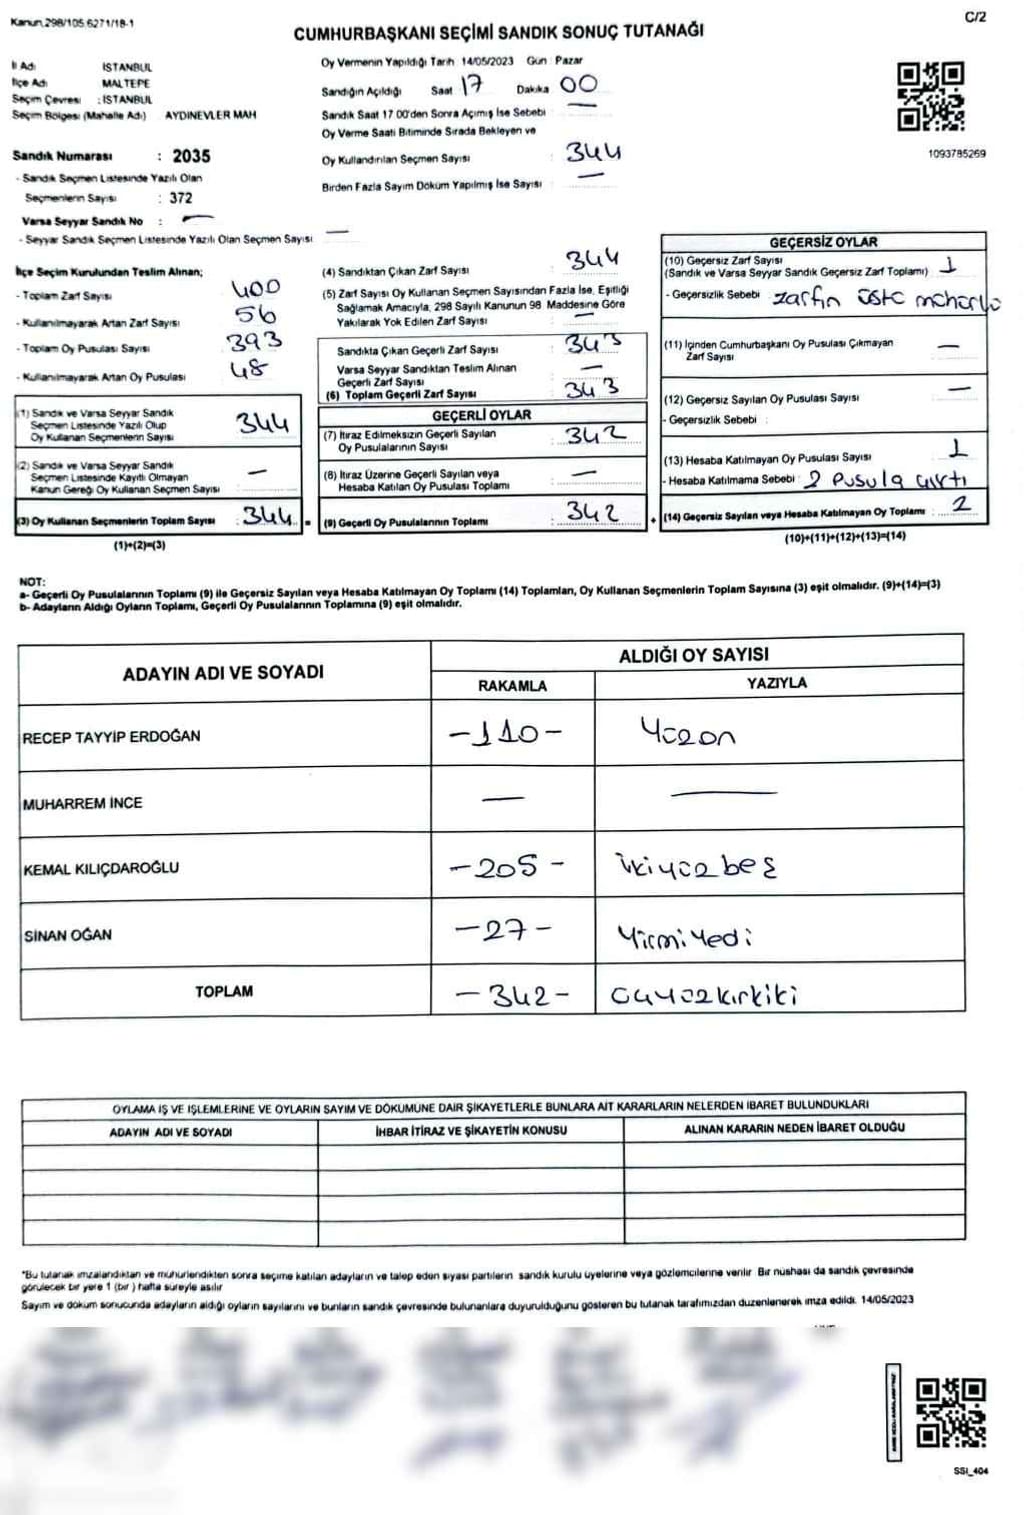 Kanun.298/105.6271/18-1
C/2
CUMHURBAŞKANI SEÇİMİ SANDIK SONUÇ TUTANAĞI
İl Adı İSTANBUL
İlçe Adı MALTEPE
Seçim Çevresi : İSTANBUL
Seçim Bölgesi (Mahalle Adı) AYDINEVLER MAH
Sandık Numarası : 2035
- Sandık Seçmen Listesinde Yazılı Olan
Seçmenlerin Sayısı : 372
Varsa Seyyar Sandık No : —
- Seyyar Sandık Seçmen Listesinde Yazılı Olan Seçmen Sayısı —
Oy Vermenin Yapıldığı Tarih 14/05/2023 Gün Pazar
Sandığın Açıldığı Saat 17 Dakika 00
Sandık Saat 17 00'den Sonra Açımış İse Sebebi : —
Oy Verme Saati Bitiminde Sırada Bekleyen ve
Oy Kullandırılan Seçmen Sayısı : 344
Birden Fazla Sayım Döküm Yapılmış İse Sayısı : —
1093785269
İlçe Seçim Kurulundan Teslim Alınan;
- Toplam Zarf Sayısı : 400
- Kullanılmayarak Artan Zarf Sayısı : 56
- Toplam Oy Pusulası Sayısı : 393
- Kullanılmayarak Artan Oy Pusulası : 48
(1) Sandık ve Varsa Seyyar Sandık
Seçmen Listesinde Yazılı Olup
Oy Kullanan Seçmenlerin Sayısı : 344
(2) Sandık ve Varsa Seyyar Sandık
Seçmen Listesinde Kayıtlı Olmayan
Kanun Gereği Oy Kullanan Seçmen Sayısı : —
(3) Oy Kullanan Seçmenlerin Toplam Sayısı : 344 =
(1)+(2)=(3)
(4) Sandıktan Çıkan Zarf Sayısı : 344
(5) Zarf Sayısı Oy Kullanan Seçmen Sayısından Fazla İse, Eşitliği
Sağlamak Amacıyla, 298 Sayılı Kanunun 98 Maddesine Göre
Yakılarak Yok Edilen Zarf Sayısı : —
Sandıkta Çıkan Geçerli Zarf Sayısı : 343
Varsa Seyyar Sandıktan Teslim Alınan
Geçerli Zarf Sayısı : —
(6) Toplam Geçerli Zarf Sayısı : 343
GEÇERLİ OYLAR
(7) İtiraz Edilmeksizin Geçerli Sayılan
Oy Pusulalarının Sayısı : 342
(8) İtiraz Üzerine Geçerli Sayılan veya
Hesaba Katılan Oy Pusulası Toplamı : —
(9) Geçerli Oy Pusulalarının Toplamı : 342 +
GEÇERSİZ OYLAR
(10) Geçersiz Zarf Sayısı
(Sandık ve Varsa Seyyar Sandık Geçersiz Zarf Toplamı) : 1
- Geçersizlik Sebebi : zarfın üstü mühürlü
(11) İçinden Cumhurbaşkanı Oy Pusulası Çıkmayan
Zarf Sayısı : —
(12) Geçersiz Sayılan Oy Pusulası Sayısı : —
- Geçersizlik Sebebi :
(13) Hesaba Katılmayan Oy Pusulası Sayısı : 1
- Hesaba Katılmama Sebebi : 2 Pusula çıktı
(14) Geçersiz Sayılan veya Hesaba Katılmayan Oy Toplamı : 2
(10)+(11)+(12)+(13)=(14)
NOT:
a- Geçerli Oy Pusulalarının Toplamı (9) ile Geçersiz Sayılan veya Hesaba Katılmayan Oy Toplamı (14) Toplamları, Oy Kullanan Seçmenlerin Toplam Sayısına (3) eşit olmalıdır. (9)+(14)=(3)
b- Adayların Aldığı Oyların Toplamı, Geçerli Oy Pusulalarının Toplamına (9) eşit olmalıdır.
ADAYIN ADI VE SOYADI ALDIĞI OY SAYISI
RAKAMLA YAZIYLA
RECEP TAYYİP ERDOĞAN -110- Yüzon
MUHARREM İNCE — —
KEMAL KILIÇDAROĞLU -205- ikiyüzbeş
SİNAN OĞAN -27- YirmiYedi
TOPLAM -342- üçyüzkırkiki
OYLAMA İŞ VE İŞLEMLERİNE VE OYLARIN SAYIM VE DÖKÜMÜNE DAİR ŞİKAYETLERLE BUNLARA AİT KARARLARIN NELERDEN İBARET BULUNDUKLARI
ADAYIN ADI VE SOYADI İHBAR İTİRAZ VE ŞİKAYETİN KONUSU ALINAN KARARIN NEDEN İBARET OLDUĞU
*Bu tutanak imzalandıktan ve mühürlendikten sonra seçime katılan adayların ve talep eden siyası partilerin sandık kurulu üyelerine veya gözlemcilerine verilir Bir nüshası da sandık çevresinde
görülecek bir yere 1 (bir ) hafta süreyle asılır
Sayım ve döküm sonucunda adayların aldığı oyların sayılarını ve bunların sandık çevresinde bulunanlara duyurulduğunu gösteren bu tutanak tarafımızdan düzenlenerek imza edildi. 14/05/2023
SSI_404